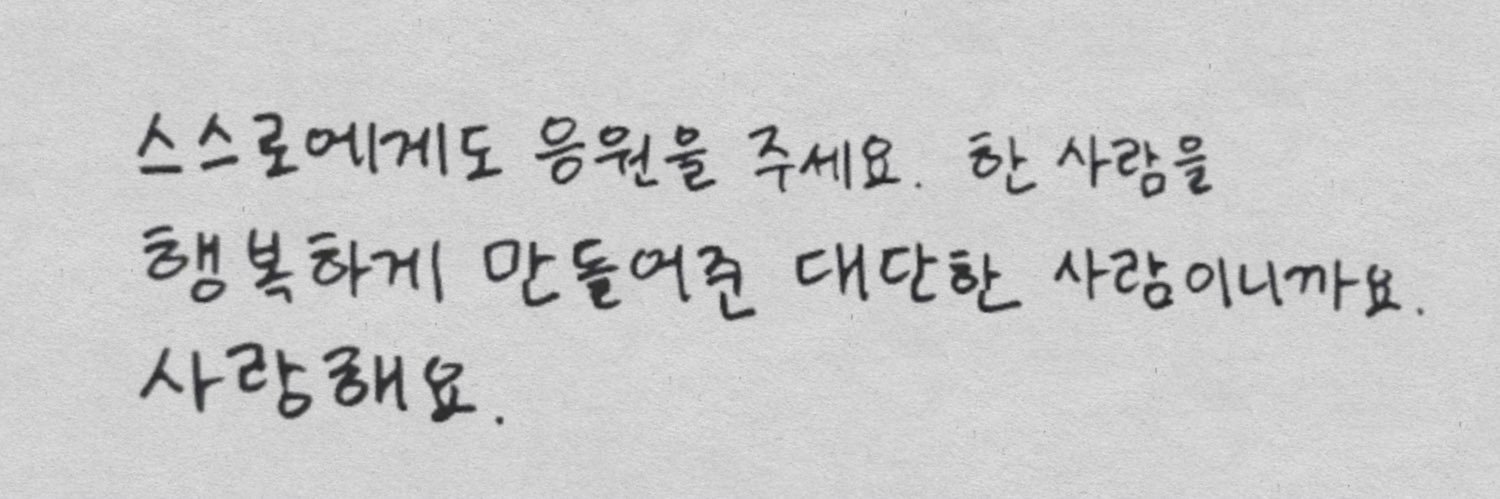 스스로에게도 응원을 주세요. 한 사람을
행복하게 만들어준 대단한 사람이니까요.
사랑해요.